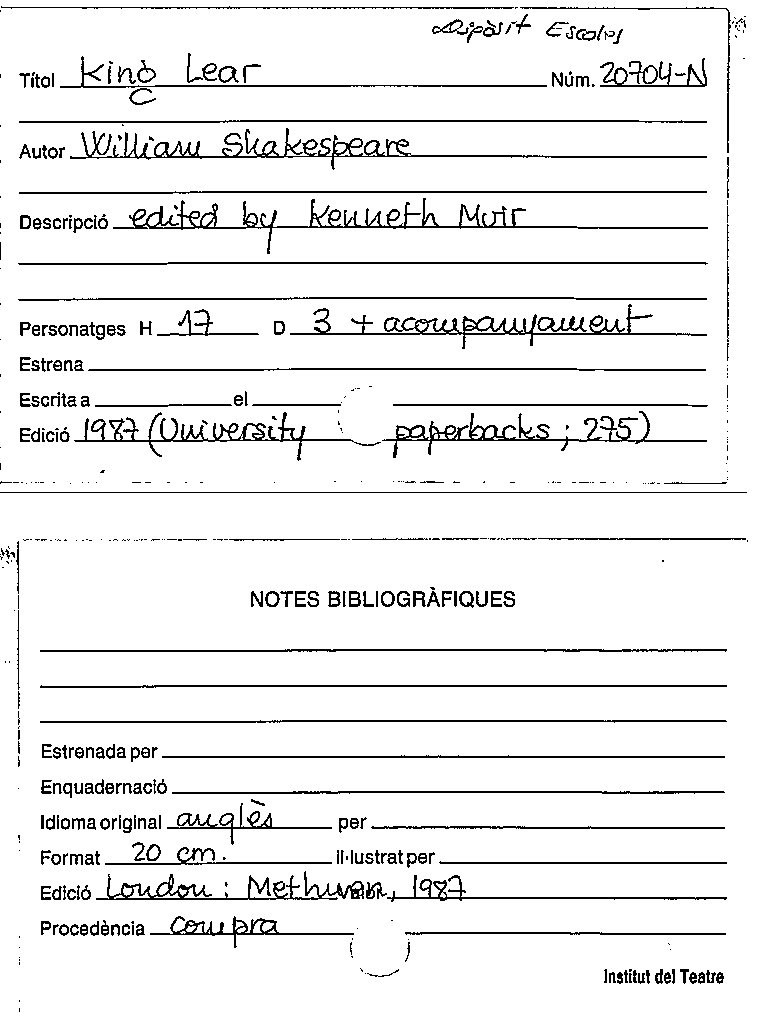 Dipòsit Escolar
Títol King Lear Núm. 20704-N
Autor William Shakespeare
Descripció edited by Kenneth Muir
Personatges H 17 D 3 + acompanyament
Estrena
Escrita a el
Edició 1987 (University paperbacks ; 275)
NOTES BIBLIOGRÀFIQUES
Estrenada per
Enquadernació
Idioma original anglès per
Format 20 cm. il·lustrat per
Edició London : Methuen, 1987
Procedència compra
Institut del Teatre